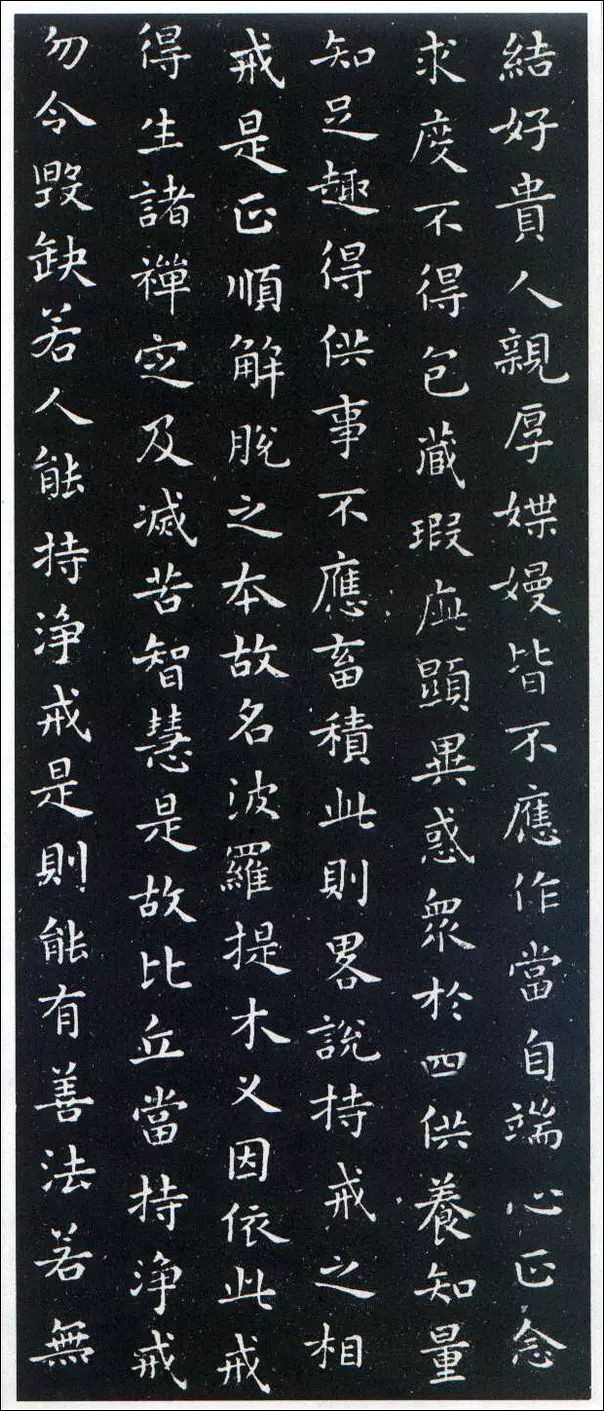 結好貴人親厚媟嫚皆不應作當自端心正念
求度不得包藏瑕疵顯異惑眾於四供養知量
知足趣得供事不應畜積此則畧說持戒之相
戒是正順解脫之本故名波羅提木叉因依此戒
得生諸禪定及滅苦智慧是故比丘當持淨戒
勿令毀缺若人能持淨戒是則能有善法若無